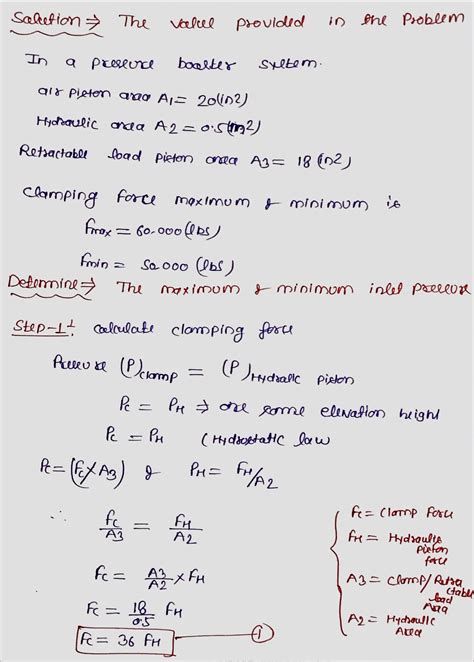 Solution ⇒ The value provided in the Problem
In a pressure booster system.
air piston area A1 = 20(in2)
Hydraulic area A2 = 0.5(in2)
Retractable load piston area A3 = 18 (in2)
Clamping force maximum & minimum is
Fmax = 60.000 (lbs)
Fmin = 50.000 (lbs)
Determine ⇒ The maximum & minimum inlet pressure
Step-1 : calculate clamping force
Pressure (P)clamp = (P)Hydralic piston
Pc = PH ⇒ are same elevation height
Pc = PH (Hydrostatic law
Pc = (Fc/A3) & PH = FH/A2
∴ Fc/A3 = FH/A2
Fc = A3/A2 × FH
Fc = 18/0.5 FH
Fc = 36 FH —①
Fc = Clamp Force
FH = Hydraulic piston force
A3 = Clamp/Retractable load Area
A2 = Hydraulic Area